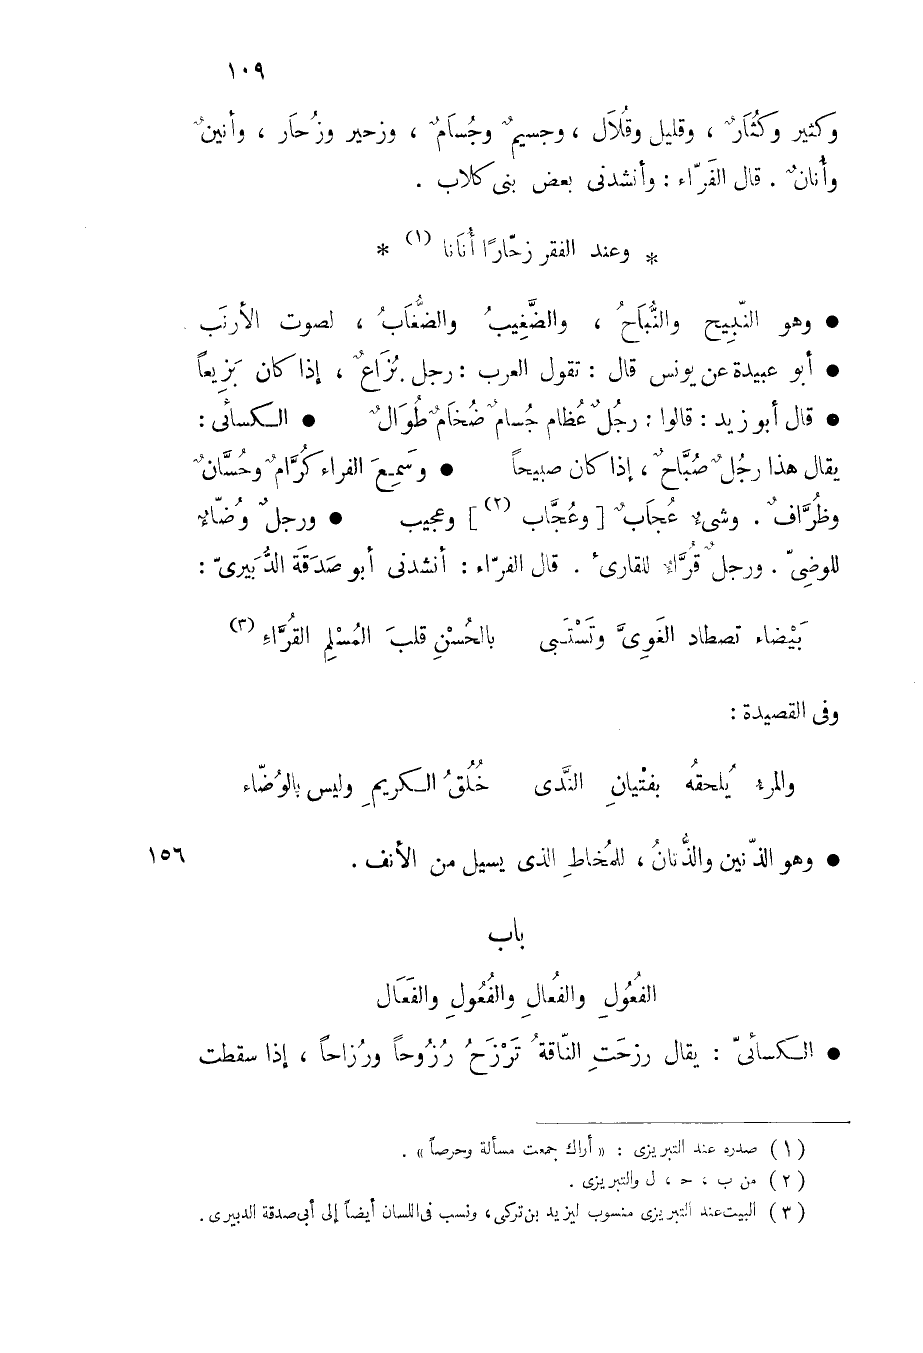 ١٠٩
وكثير وكُثَارٌ ، وقليل وقُلاَل ، وجسيمٌ وجُسامٌ ، وزحير وزُحار ، وأنينٌ
وأُنانٌ . قال الفَرّاء : وأنشدنى بعض بنى كلاب .
* وعند الفقر زحّارًا أُنَانا (١) *
● وهو النّبيح والنُّبَاحُ ، والضَّغِيبُ والضُّغَابُ ، لصوت الأرنَب
● أبو عبيدة عن يونس قال : تقول العرب : رجل بُزَاعٌ ، إذا كان بَزِيعاً
● قال أبو زيد : قالوا : رجُلٌ عُظام جُسامٌ ضُخَامٌ طُوَالٌ ● الكسائى :
يقال هذا رجُلٌ صُبَّاحٌ ، إذا كان صبيحاً ● وسَمِعَ الفراء كُرَّامٌ وحُسَّانٌ
وظُرَّافٌ . وشىء عُجابٌ [ وعُجَّاب (٢) ] وعجيب ● ورجلٌ وُضّاء
للوضِىّ . ورجلٌ قُرَّاء للقارئ . قال الفرّاء : أنشدنى أبو صَدَقَة الدُّبَيرىّ :
بَيْضاء تصطاد الغَوِىَّ وتَسْتَبى بالحُسْنِ قلبَ المُسْلِمِ القُرَّاءِ (٣)
وفى القصيدة :
والمرء يُلحقُه بفتْيانِ النَّدى خُلُقُ الكريمِ وليس بالوُضّاء
● وهو الذّنين والذُّنانُ ، للمُخاطِ الذى يسيل من الأنف . ١٥٦
باب
الفُعُولِ والفُعالِ والفُعُولِ والفَعَال
● الكسائىّ : يقال رزحَتِ النّاقةُ تَرْزَحُ رُزُوحاً ورُزاحاً ، إذا سقطت
(١) صدره عند التبريزى : « أراك جمعت مسألة وحرصاً » .
(٢) من ب ، ح ، ل والتبريزى .
(٣) البيت عند التبريزى منسوب ليزيد بن تركى ، ونسب فى اللسان أيضاً إلى أبى صدقة الدبيرى .